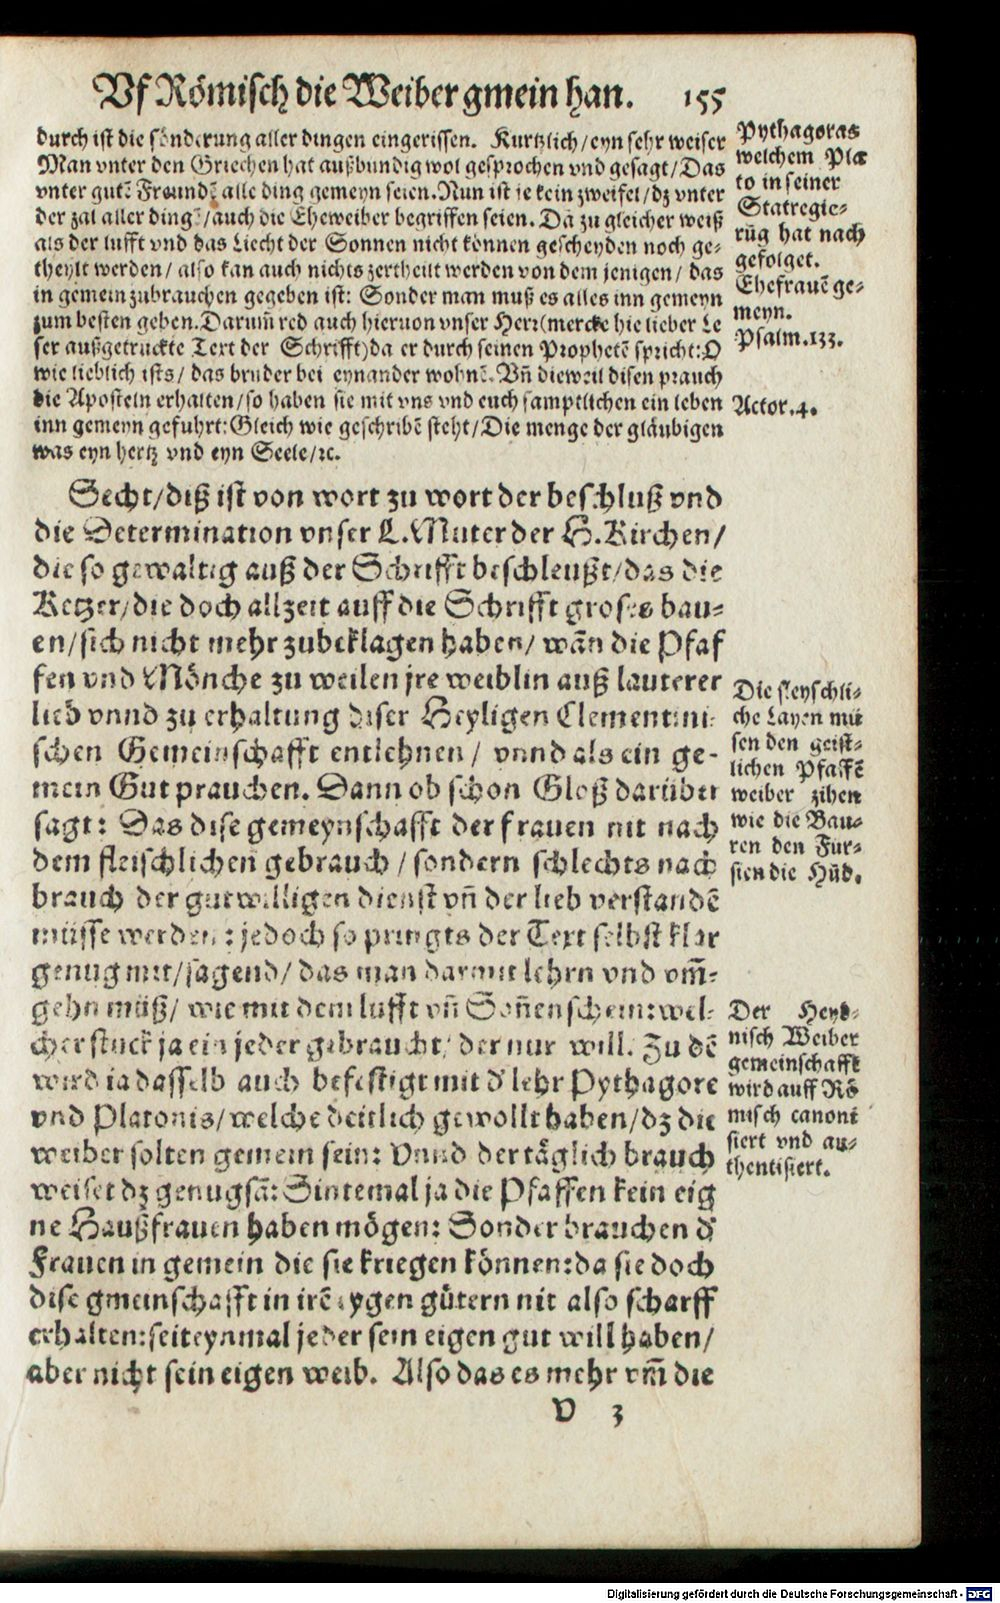 Vf Römisch die Weiber gmein han. 155
durch ist die sönderung aller dingen eingerissen. Kurtzlich/eyn sehr weiser
Man vnter den Griechen hat außbundig wol gesprochen vnd gesagt/Das
vnter gutē Freundē alle ding gemeyn seien. Nun ist ie kein zweifel/dz vnter
der zal aller ding/auch die Eheweiber begriffen seien. Dā zu gleicher weiß
als der lufft vnd das Liecht der Sonnen nicht können gescheyden noch ge-
theylt werden/ also kan auch nichts zertheilt werden von dem jenigen/ das
in gemein zubrauchen gegeben ist: Sonder man muß es alles inn gemeyn
zum besten geben. Darum̄ red auch hieruon vnser Herr(mercke hie lieber Le
ser außgetruckte Text der Schrifft)da er durch seinen Prophetē spricht:O
wie lieblich ists/ das bruder bei eynander wohnē. Vn̄ dieweil disen prauch
die Aposteln erhalten/so haben sie mit vns vnd euch samptlichen ein leben
inn gemeyn gefuhrt:Gleich wie geschribē steht/Die menge der gläubigen
was eyn hertz vnd eyn Seele/ꝛc.
Pythagoras
welchem Pla
to in seiner
Statregie-
rūg hat nach
gefolget.
Ehefrauē ge-
meyn.
Psalm.133.
Actor.4.
Secht/diß ist von wort zu wort der beschluß vnd
die Determination vnser L.Muter der H.Kirchen/
die so gewaltig auß der Schrifft beschleußt/das die
Ketzer/die doch allzeit auff die Schrifft groses bau-
en/sich nicht mehr zubeklagen haben/ wān die Pfaf
fen vnd Mönche zu weilen jre weiblin auß lauterer
lieb vnnd zu erhaltung diser Heyligen Clementini-
schen Gemeinschafft entlehnen/ vnnd als ein ge-
mein Gut prauchen. Dann ob schon Gloß darüber
sagt: Das dise gemeynschafft der frauen nit nach
dem fleischlichen gebrauch/sondern schlechts nach
brauch der gutwilligen dienst vn̄ der lieb verstandē
müsse werden: jedoch so pringts der Text selbst klar
genug mit/sagend/ das man darmit lehrn vnd vm̄-
gehn müß/ wie mit dem lufft vn̄ Son̄enschein:wel-
cher stuck ja ein jeder gebraucht/ der nur will. Zu dē
wird ia dasselb auch befestigt mit d' lehr Pythagore
vnd Platonis/welche deitlich gewollt haben/dz die
weiber solten gemein sein: Vnnd der täglich brauch
weiset dz genugsā: Sintemal ja die Pfaffen kein eig
ne Haußfrauen haben mögen: Sonder brauchen d'
Frauen in gemein die sie kriegen können:da sie doch
dise gmeinschafft in irē eygen gütern nit also scharff
erhalten:seiteynmal jeder sein eigen gut will haben/
aber nicht sein eigen weib. Also das es mehr vm̄ die
Die fleyschli-
che Layen mü
sen den geist-
lichen Pfaffē
weiber zihen
wie die Bau-
ren den Für-
sten die Hūd.
Der Heyd-
nisch Weiber
gemeinschafft
wird auff Rö
misch canoni
siert vnd au-
thentisiert.
V 3
Digitalisierung gefördert durch die Deutsche Forschungsgemeinschaft - DFG